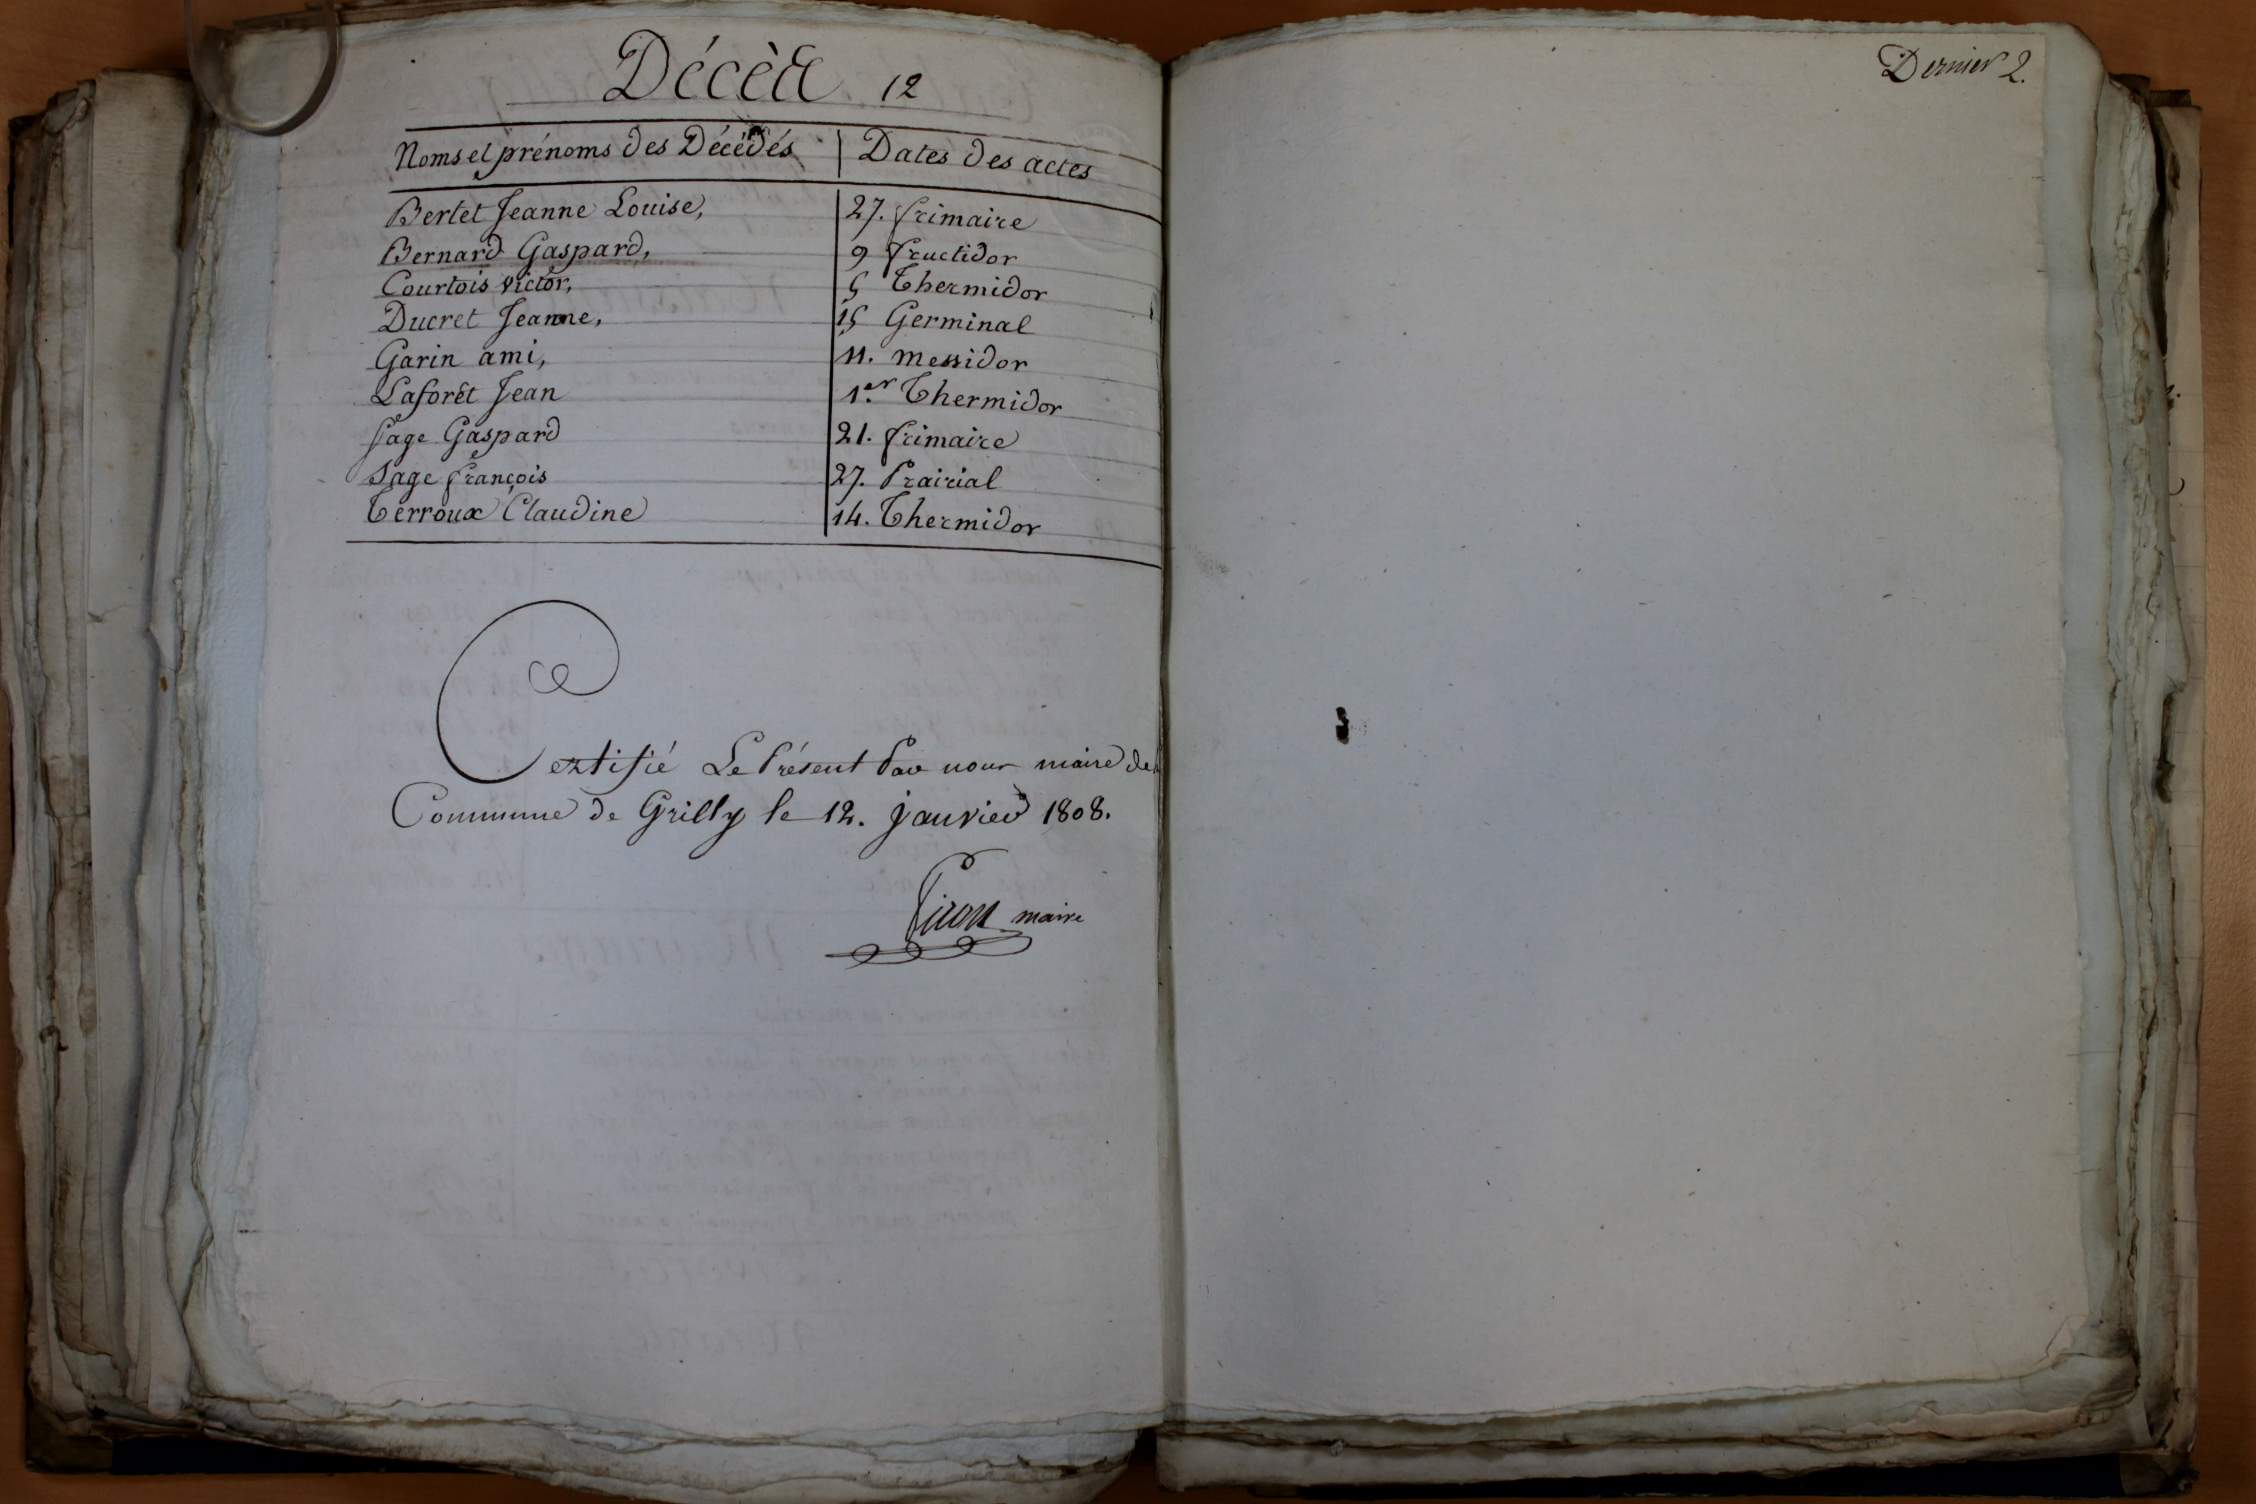 Décès 12
Noms et prénoms des Décédés | Dates des actes
Bertet Jeanne Louise, 27. frimaire
Bernard Gaspard, 9 fructidor
Courtois victor, 5 Thermidor
Ducret Jeanne, 15 Germinal
Garin ami, 11. messidor
Laforêt Jean 1.er Thermidor
Sage Gaspard 21. frimaire
Sage françois 27. Prairial
Terroux Claudine 14. Thermidor
Certifié Le Présent Par nous maire de
Commune de Grilly le 12. janvier 1808.
maire
Dernier 2.